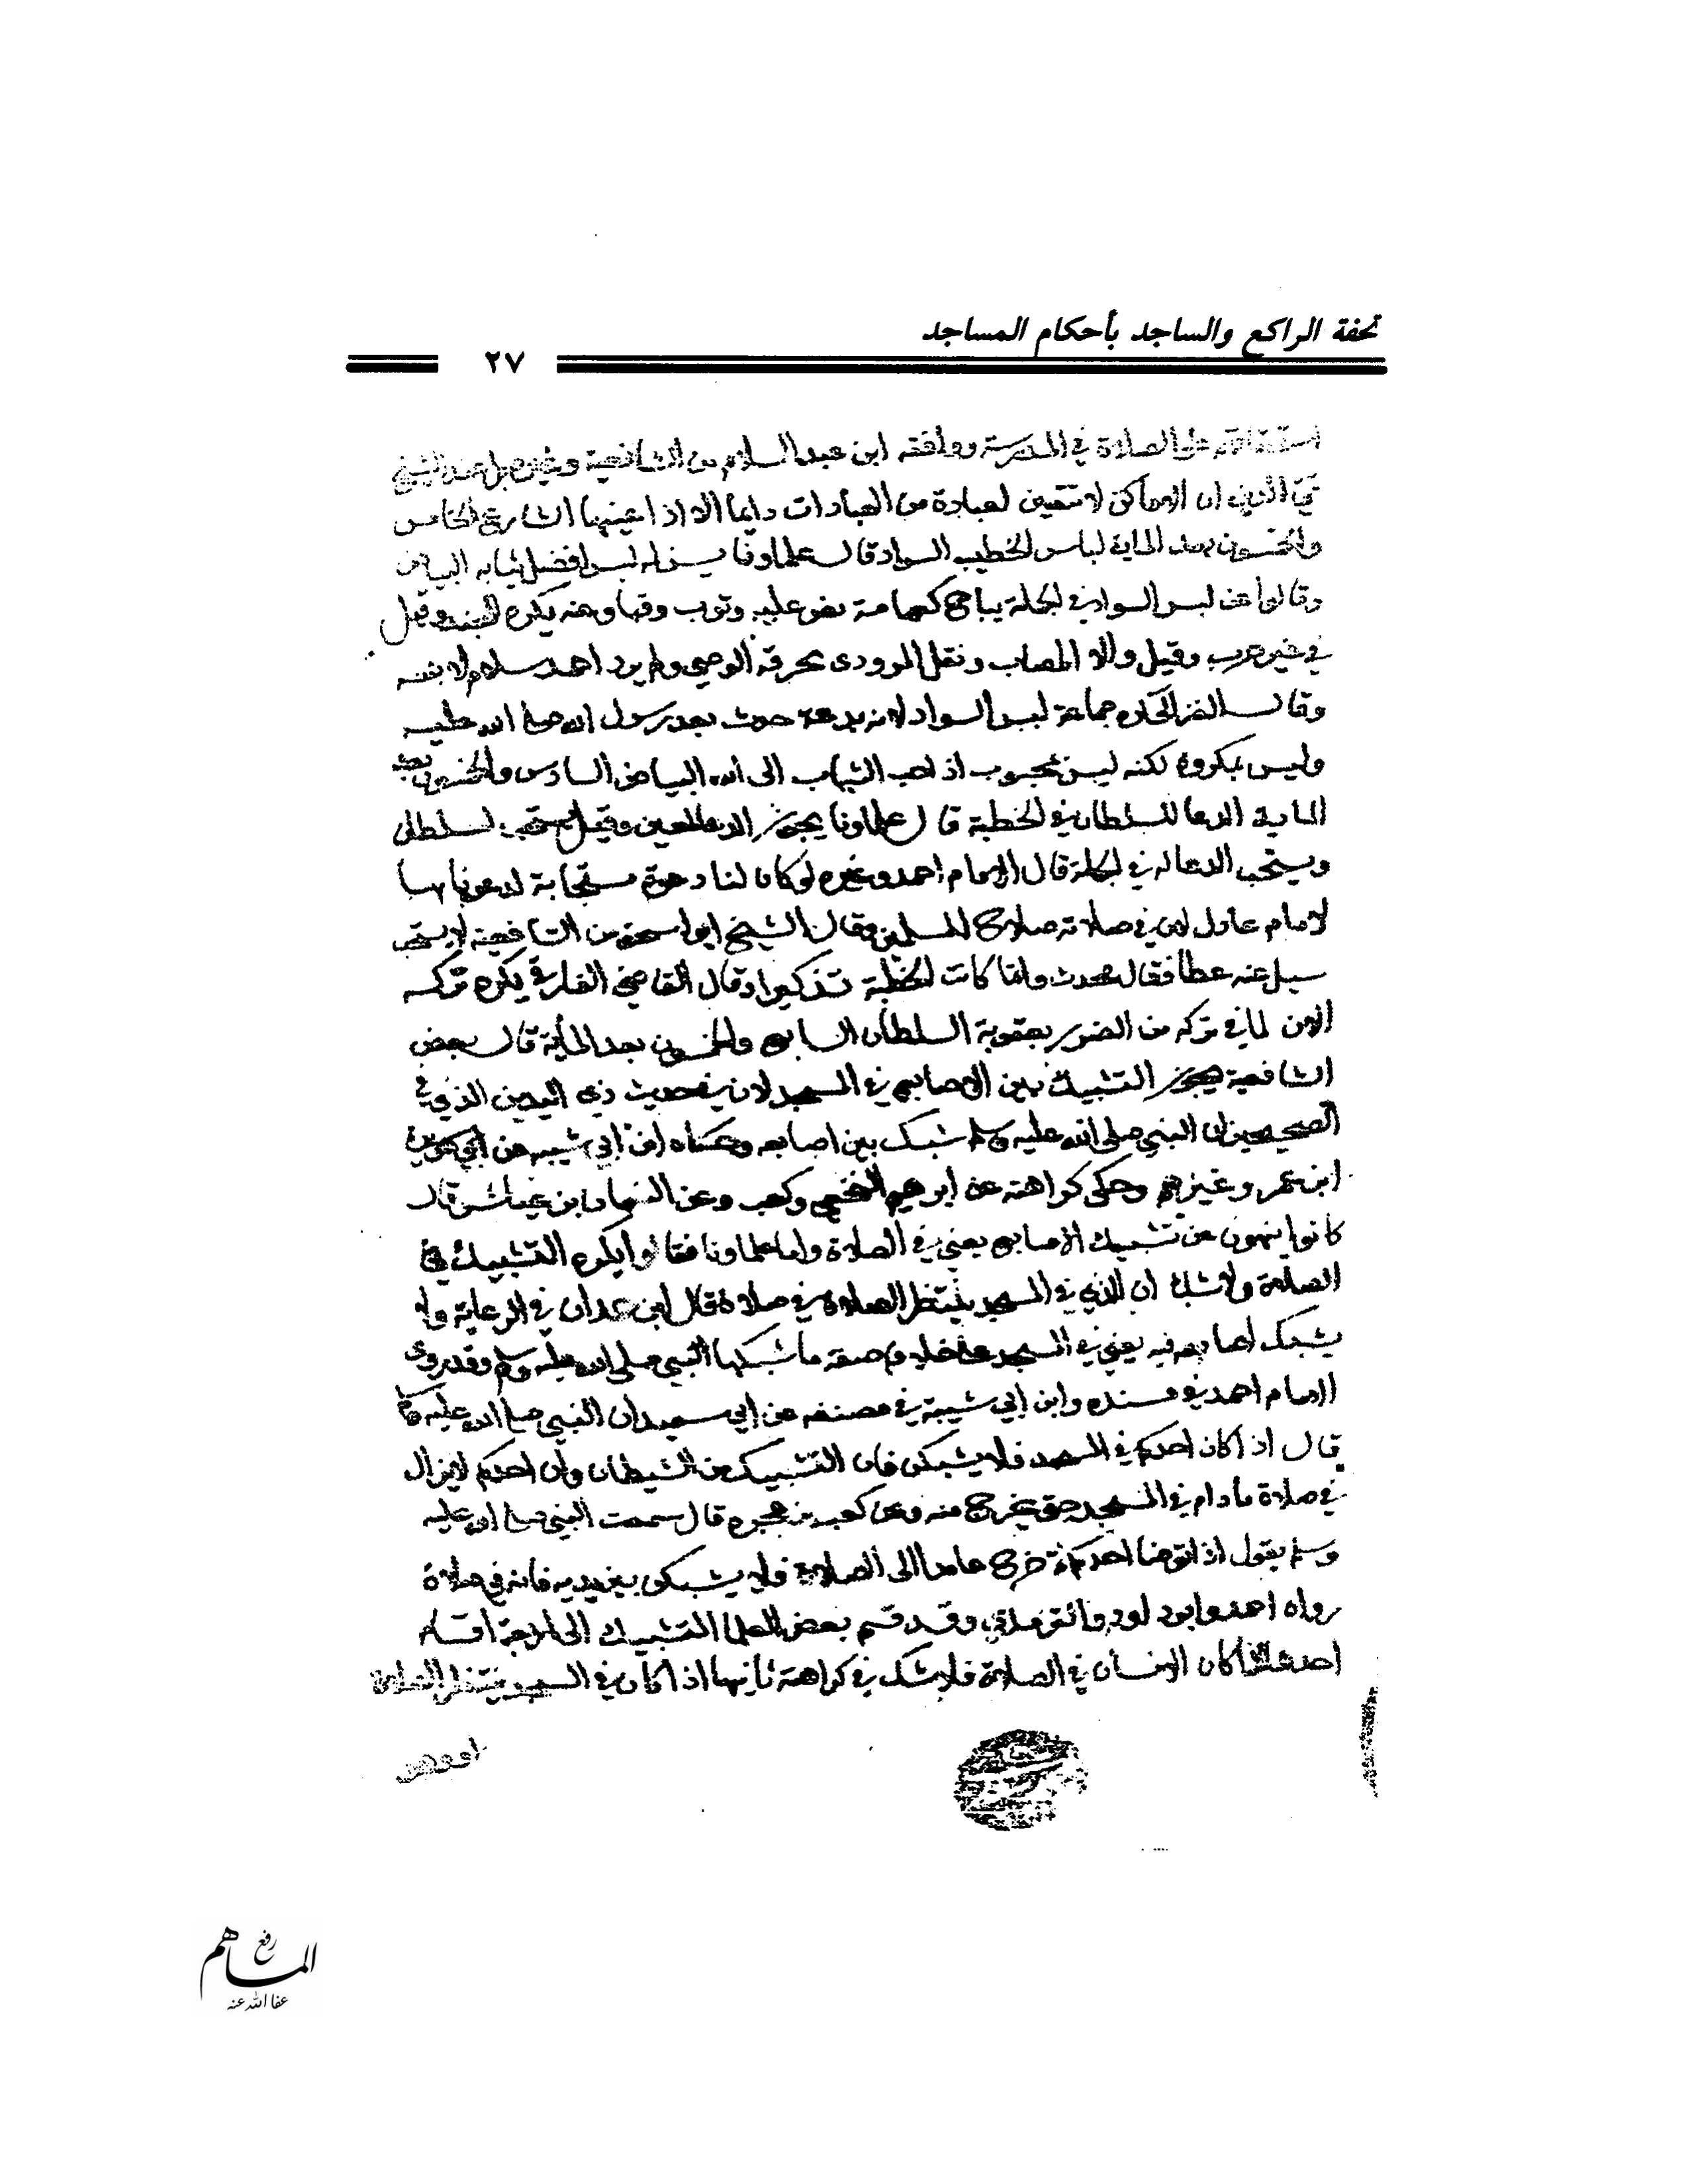 تحفة الراكع والساجد بأحكام المساجد
٢٧
على الصلاة في المدرسة ووافقه ابن عبد السلام من الشافعية
تقي الدين ان الاماكن لا تتعين لعبادة من العبادات دايما الا اذا عينها الشارع الخامس
والخمسون بعد الماية لباس الخطيب السواد قال علماونا يسن له لبس افضل ثيابه البياض
لبس السواد في الجملة يباح كعمامة نص عليه وثوب وقبا وعنه يكره للجند وقيل
في غير حرب وقيل والا لمصاب ونقل المرودى يحرقه الوصي ولم يرد احمد سلام لابسه
وقال جماعة لبس السواد لانه بدعة حدث بعد رسول الله صلى الله عليه
وليس بمكروه لكنه ليس بمحبوب اذ احب الثياب الى الله البياض السادس والخمسون بعد
الماية الدعا للسلطان في الخطبة قال علماونا يجوز الدعا لمعين وقيل يستحب لسلطان
ويستحب الدعا له في الجملة قال الامام احمد وغيره لو كان لنا دعوة مستجابة لدعونا بها
لامام عادل لان في صلاحه صلاح المسلمين وقال الشيخ ابو اسحق من الشافعية لا يستحب
سيل عنه عطا فقال محدث وانما كانت الخطبة تذكيرا وقال القاضي الفارقي يكره تركه
الان لما في تركه من الضرر بعقوبة السلطان السابع والخمسون بعد الماية قال بعض
الشافعية يجوز التشبيك بين الاصابع في المسجد لان في حديث ذي اليدين الذي في
الصحيحين ان النبي صلى الله عليه وسلم شبك بين اصابعه وحكاه ابن ابي شيبه عن
ابن عمر وغيرهم وحكى كراهته عن ابرهيم النخعي وكعب وعن النعمان ابن عياش قال
كانوا ينهون عن تشبيك الاصابع يعني في الصلاة واما علماونا فقالوا يكره التشبيك في
الصلاة ولا شك ان الذي في المسجد ينتظر الصلاة في صلاة قال ابن حمدان في الرعاية ولا
يشبك اصابعه فيه يعني في المسجد على خلاف صفة ما شبكها النبي صلى الله عليه وسلم وقد روى
الامام احمد في مسنده وابن ابي شيبة في مصنفه عن ابي سعيد ان النبي صلى الله عليه وسلم
قال اذا كان احدكم في المسجد فلا يشبكن فان التشبيك من الشيطان وان احدكم لا يزال
في صلاة ما دام في المسجد حتى يخرج منه وعن كعب بن عجره قال سمعت النبي صلى الله عليه
وسلم يقول اذا توضا احدكم ثم خرج عامدا الى الصلاة فلا يشبكن بين يديه فانه في صلاة
رواه احمد وابو داود والترمذي وقد قسم بعض العلما التشبيك الى اربعة اقسام
احدها اذا كان الانسان في الصلاة فلا شك في كراهته ثانيها اذا كان في المسجد ينتظر الصلاة
رفع
المساهم
عفا الله عنه